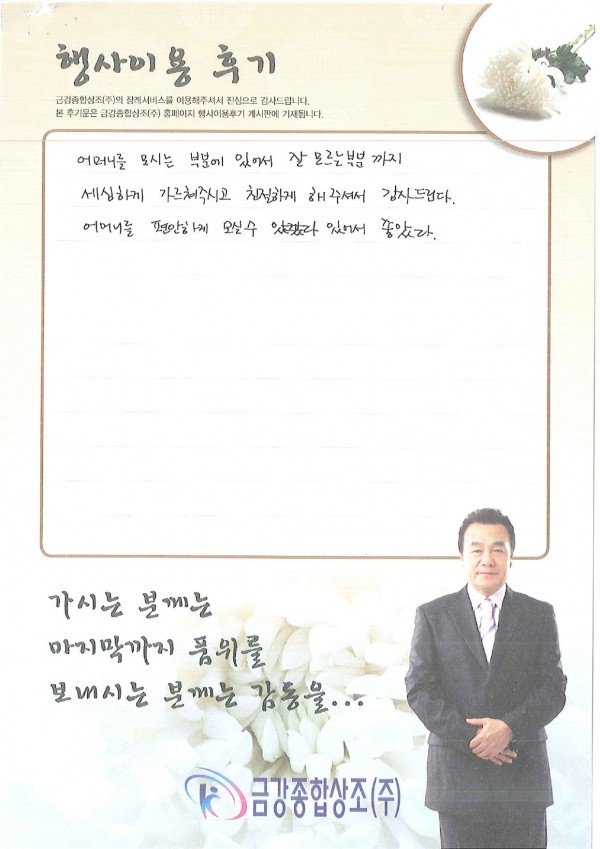 행사이용 후기
금강종합상조(주)의 장례서비스를 이용해주셔서 진심으로 감사드립니다.
본 후기문은 금강종합상조(주) 홈페이지 행사이용후기 게시판에 기재됩니다.
어머니를 모시는 부분에 있어서 잘 모르는부분 까지
세심하게 가르쳐주시고 친절하게 해주셔서 감사드린다.
어머니를 편안하게 모실수 있어서 좋았다.
가시는 분께는
마지막까지 품위를
보내시는 분께는 감동을...
금강종합상조(주)